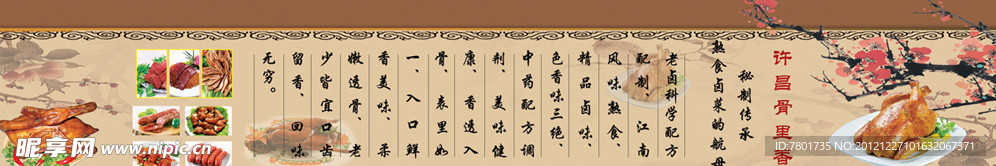 许昌骨里香
秘制传承
熟食卤菜的航母
老卤科学配方
配制、江南
风味熟食、
精品卤味、
色香味三绝、
中药配方调
剂、美味健
康、香透入
骨、表里如
一、入口鲜
香美味、柔
嫩透骨、老
少皆宜口齿
留香、回味
无穷。
昵享网 www.nipic.cn
昵图网 www.nipic.com
ID:7801735 NO:20121227101632067371